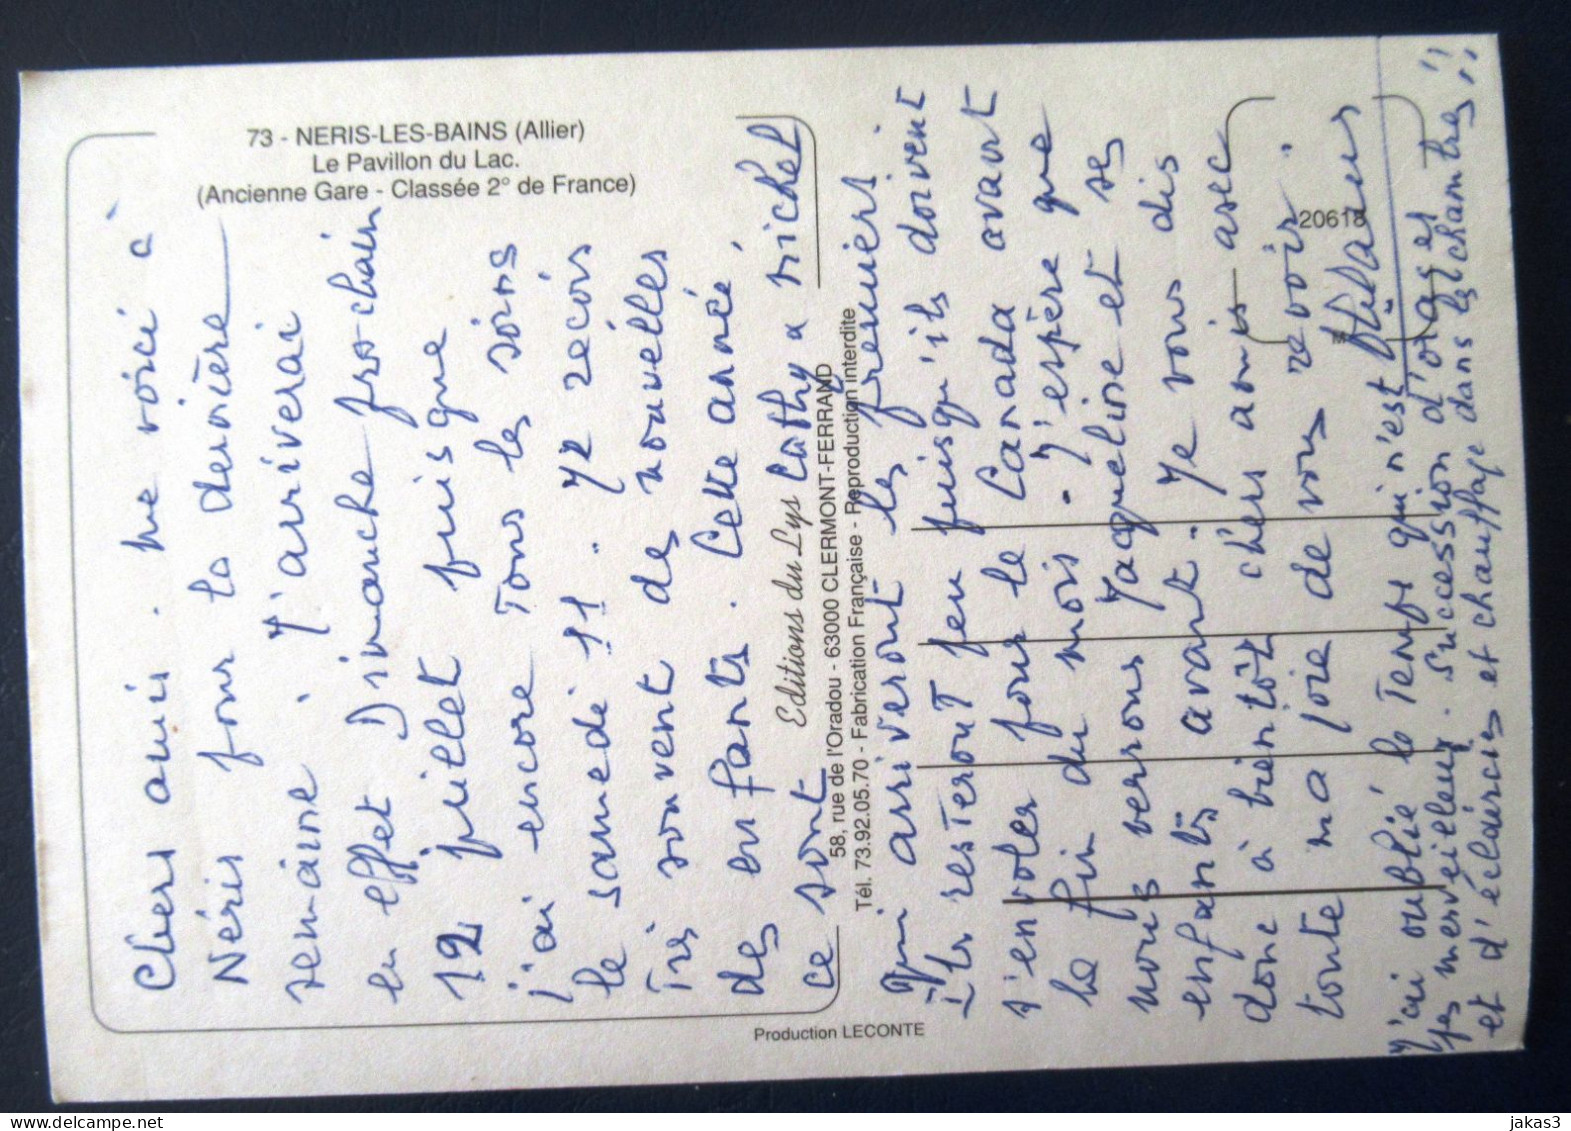 73 - NERIS-LES-BAINS (Allier)
Le Pavillon du Lac.
(Ancienne Gare - Classée 2° de France)
Editions du Lys
58, rue de l'Oradou - 63000 CLERMONT-FERRAND
Tél. 73.92.05.70 - Fabrication Française - Reproduction interdite
Production LECONTE
20618
Chers amis. me voici à
Néris pour la dernière
semaine. J'arriverai
en effet Dimanche prochain
12 juillet puisque
j'ai encore Tous les soins
le samedi 11. Je reçois
Très souvent de nouvelles
des enfants. Cette année,
ce sont Cathy a Michel
qui arriveront les premiers
Ils resteront peu puisqu'ils doivent
s'envoler pour le Canada avant
la fin du mois. J'espère que
nous verrons Jacqueline et ses
enfants avant. Je vous dis
donc à bientôt chers amis avec
toute ma joie de vous revoir.
J'ai oublié le Temps qui n'est
pas merveilleux. Succession d'orages
et d'éclaircies et chauffage dans les chambres!!
jakas3